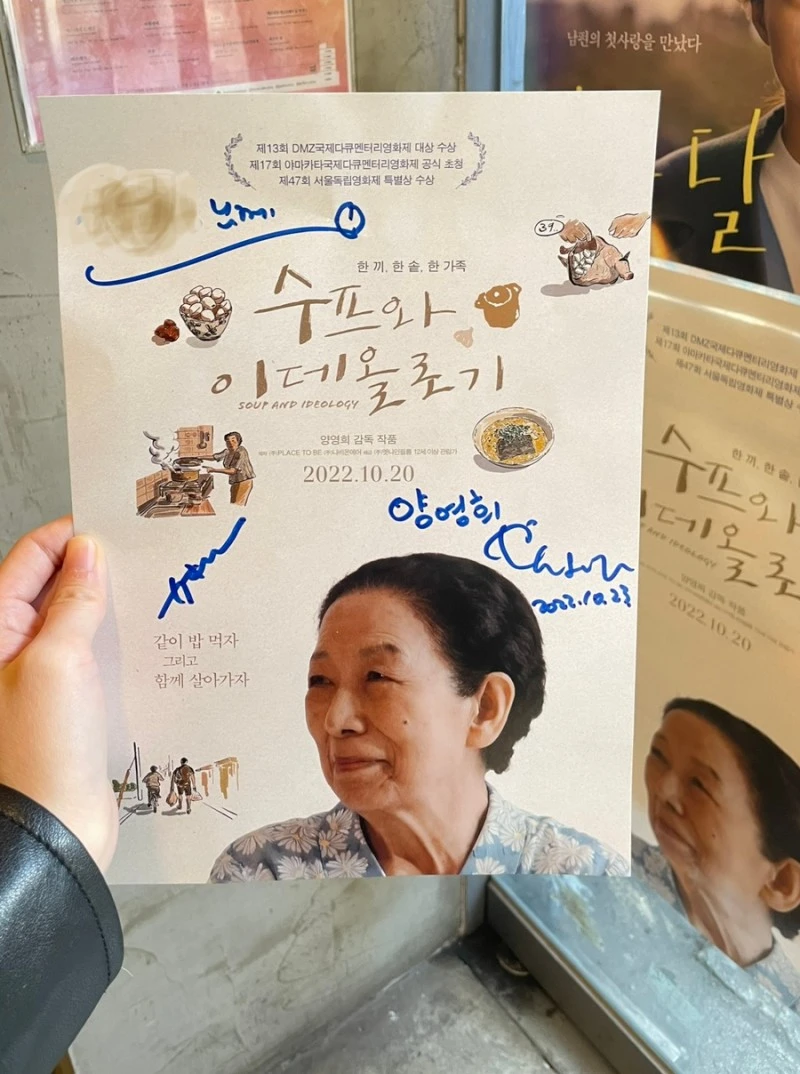 제13회 DMZ국제다큐멘터리영화제 대상 수상
제17회 야마가타국제다큐멘터리영화제 공식 초청
제47회 서울독립영화제 특별상 수상
님께
39.
한 끼, 한 솥, 한 가족
수프와
이데올로기
SOUP AND IDEOLOGY
양영희 감독 작품
2022.10.20
양영희
2022.10.23
같이 밥 먹자
그리고
함께 살아가자
남편의 첫사랑을 만났다
달
제13회 DMZ국제다큐멘터리영화제
제17회 야마가타국제다큐멘터리영화제
제47회 서울독립영화제 특별상
한 끼, 한 솥,
수프와
이데올로
SOUP AND IDEOLOGY
양영희 감독 작품
2022.10.20